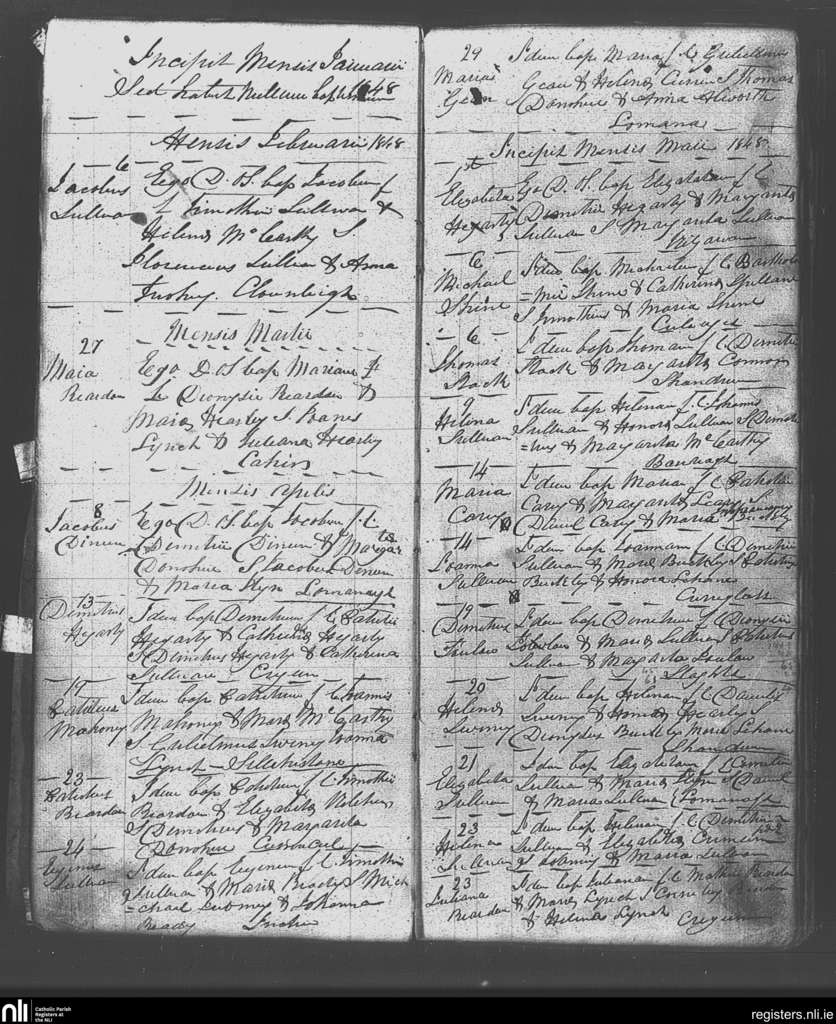 Incipit Mensis Januarii
Sed habet nullum bapt 1848
Mensis Februarii 1848
6
Jacobus
Sullivan
Ego D. OS. bap Jacobum f
l Timothii Sullivan &
Helena McCarthy S
Florencius Sullivan & Anna
Tuohy. Clounleigh
Mensis Martii
27
Maria
Reardon
Ego D. OS bap Mariam f
l Dionysii Reardon &
Maria Hearty S. Joanes
Lynch & Juliana Hearty
Cahirs
Mensis Aprilis
8
Jacobus
Dineen
Ego D. OS. bap Jacobum f. l
Demetrii Dineen & Margar
Donohue S Jacobus Dineen
& Maria Flyn Lomanagh
13
Demetrius
Hegarty
Idem bap Demetrium f l Patritii
Hegarty & Catherina Hegarty
S Demetrius Hegarty & Catherina
Sullivan Creguin
19
Mahoney
Idem bap f l Joannis
Mahoney & Maria McCarthy
S Gulielmus Sweny Joanna
Lynch
23
Patritius
Reardon
Idem bap Patritium f l Timothii
Reardon & Elizabeth
S Demetrius & Margarita
Donohue
24
Eugenius
Sullivan
Idem bap Eugenium f l Timothii
Sullivan & Maria Ready S Mich
=chael & Johanna
Ready
29
Maria
Gean
Idem bap Maria f l Gulielmi
Gean & Helena S Thomas
Donohue & Anna Alworth
Lomana
Incipit Mensis Maii 1848
1st
Elizabeta
Hegarty
Ego D. OS. bap Elizabetam f l
Demetrii Hegarty & Margarita
Sullivan S Margarita Sullivan
6
Michael
Shine
Idem bap Michaelem f l Bartholo
=mei Shine & Catherina Spillane
S Timothius & Maria Shine
6
Thomas
Stack
Idem bap Thomam f l Demetrii
Stack & Margarita Connor
9
Helena
Sullivan
Idem bap Helenam f. l. Johannis
Sullivan & Honora Sullivan S Demetri
=us & Margarita McCarthy
14
Maria
Carey
Idem bap Mariam f l Patritii
Carey & Margarita Leary S
Daniel Carey & Maria Buckley
14
Joanna
Sullivan
Idem bap Joannam f l Demetrii
Sullivan & Maria Buckley S Patritius
Buckley & Honora Lehane
Cureglass
19
Demetrius
Idem bap Demetrium f l Dionysii
& Maria Sullivan S Patritius
Sullivan & Margarita
Slaghts
20
Helena
Sweny
Idem bap Helenam f l Danielis
Sweny & Honora Hearty S
Dionysius Buckley Maria Lehane
21
Elizabeta
Sullivan
Idem bap Elizabetam f l Demetrii
Sullivan & Maria Flyn S Daniel
& Maria Sullivan Lomanagh
23
Helena
Sullivan
Idem bap Helenam f l Demetrii
Sullivan & Elizabetha
S Joannes & Maria Sullivan
23
Juliana
Reardon
Idem bap Julianam f l Mathew Reardon
& Maria Lynch S Corneley Reardon
& Helena Lynch Creguin
nli
Catholic Parish
Registers at
the NLI
registers.nli.ie